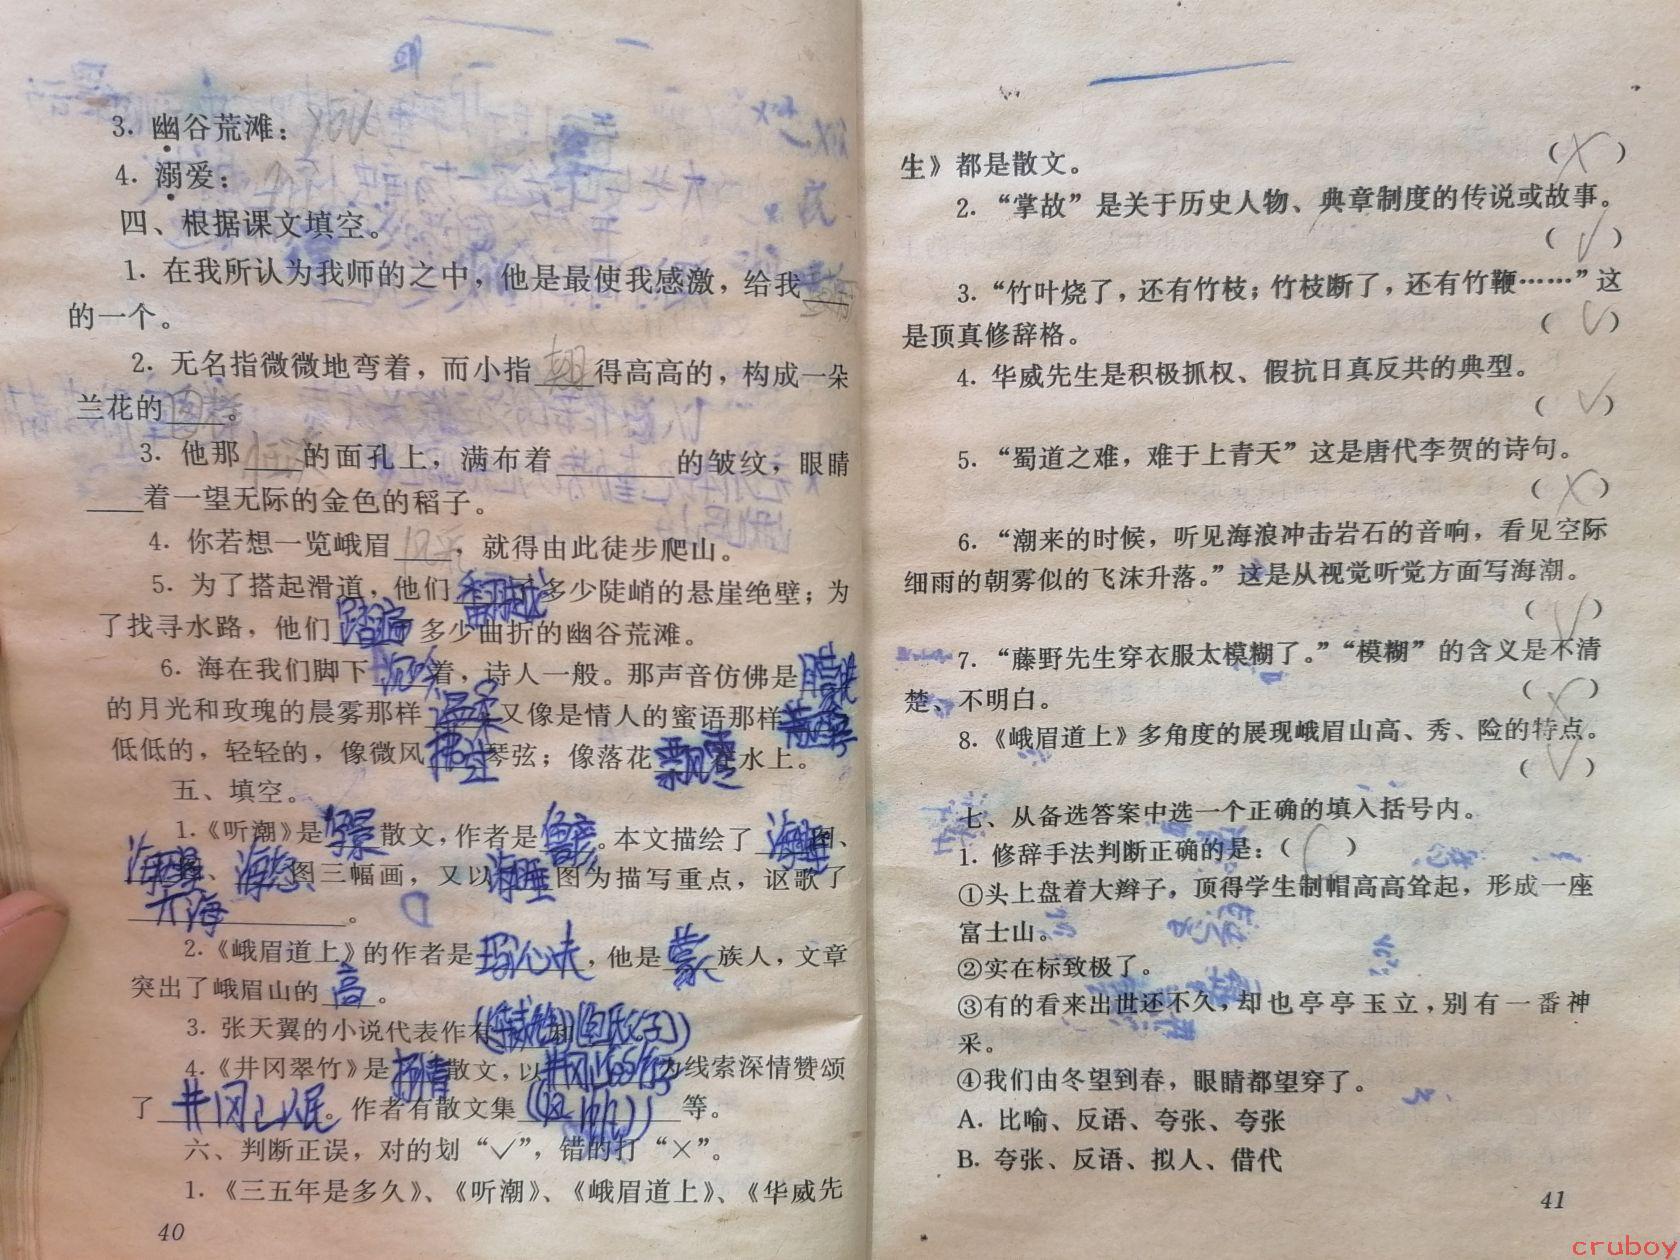 3. 幽谷荒滩：you
4. 溺爱：
四、根据课文填空。
1. 在我所认为我师的之中，他是最使我感激，给我
的一个。
2. 无名指微微地弯着，而小指 翘 得高高的，构成一朵
兰花的 图案 。
3. 他那____的面孔上，满布着________的皱纹，眼睛
____着一望无际的金色的稻子。
4. 你若想一览峨眉 风采 ，就得由此徒步爬山。
5. 为了搭起滑道，他们 翻越 了多少陡峭的悬崖绝壁；为
了找寻水路，他们 踏遍 了多少曲折的幽谷荒滩。
6. 海在我们脚下 沉吟 着，诗人一般。那声音仿佛是 朦胧
的月光和玫瑰的晨雾那样 温柔 ，又像是情人的蜜语那样
低低的，轻轻的，像微风 拂过 琴弦；像落花 飘零 在水上。
五、填空。
1.《听潮》是 写景 散文，作者是 鲁彦 。本文描绘了 海睡 图、
海醒 图、海怒 图三幅画，又以 海醒 图为描写重点，讴歌了
大海 。
2.《峨眉道上》的作者是 玛拉沁夫 ，他是 蒙 族人，文章
突出了峨眉山的 高 。
3. 张天翼的小说代表作有 《华威先生》 和 《包氏父子》
4.《井冈翠竹》是 抒情 散文，以 井冈翠竹 为线索深情赞颂
了 井冈山人民 。作者有散文集 《风帆》 等。
六、判断正误，对的划“✓”，错的打“×”。
1.《三五年是多久》、《听潮》、《峨眉道上》、《华威先
40
生》都是散文。
（×）
2. “掌故”是关于历史人物、典章制度的传说或故事。
（✓）
3. “竹叶烧了，还有竹枝；竹枝断了，还有竹鞭……”这
是顶真修辞格。
（✓）
4. 华威先生是积极抓权、假抗日真反共的典型。
（✓）
5. “蜀道之难，难于上青天”这是唐代李贺的诗句。
（×）
6. “潮来的时候，听见海浪冲击岩石的音响，看见空际
细雨的朝雾似的飞沫升落。”这是从视觉听觉方面写海潮。
（✓）
7. “藤野先生穿衣服太模糊了。”“模糊”的含义是不清
楚、不明白。
（×）
8.《峨眉道上》多角度的展现峨眉山高、秀、险的特点。
（✓）
七、从备选答案中选一个正确的填入括号内。
1. 修辞手法判断正确的是：（ ）
①头上盘着大辫子，顶得学生制帽高高耸起，形成一座
富士山。
②实在标致极了。
③有的看来出世还不久，却也亭亭玉立，别有一番神
采。
④我们由冬望到春，眼睛都望穿了。
A. 比喻、反语、夸张、夸张
B. 夸张、反语、拟人、借代
41
cruboy